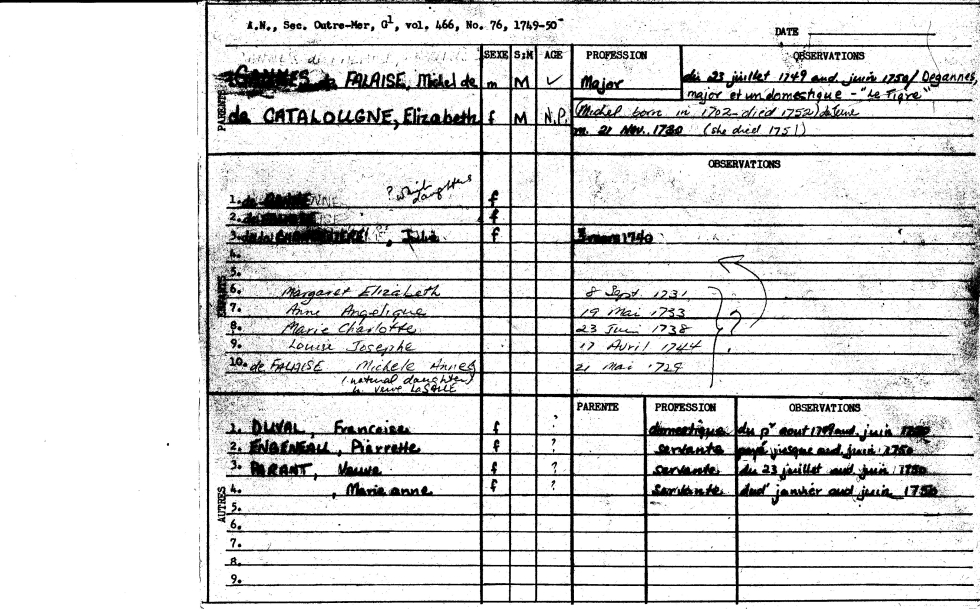 A.N., Sec. Outre-Mer, G1, vol. 466, No. 76, 1749-50
DATE
SEXE S:M AGE PROFESSION OBSERVATIONS
PARENTS
de FALAISE, Michel de m M ✓ Major du 23 juillet 1749 aud. juin 1750/ Degannes,
major et un domestique - "Le Tigre"
de CATALOUGNE, Elizabeth f M N.P. (Michel born in 1702 - died 1752)
m. 21 Nov. 1730 (she died 1751)
OBSERVATIONS
ENFANTS
1. de ? which daughters f
2. de f
3. de la , Julie f 3 mars 1740
4.
5.
6. Margaret Elizabeth 8 Sept 1731
7. Anne Angelique 19 Mai 1733
8. Marie Charlotte 23 Juin 1738 ?
9. Louise Josephe 17 Avril 1744
10. de FALAISE Michele Annee 21 Mai 1729
(natural daughter)
PARENTE PROFESSION OBSERVATIONS
AUTRES
1. DUVAL, Francoise f ? domestique du pr aout 1749 aud. juin 1750
2. ENGENEAU, Pierrette f ? servante payé jusque aud. juin 1750
3. PARANT, Veuve f ? servante du 23 juillet aud. juin 1750
4. , Marie anne f ? servante dud' janvier aud juin 1750
5.
6.
7.
8.
9.